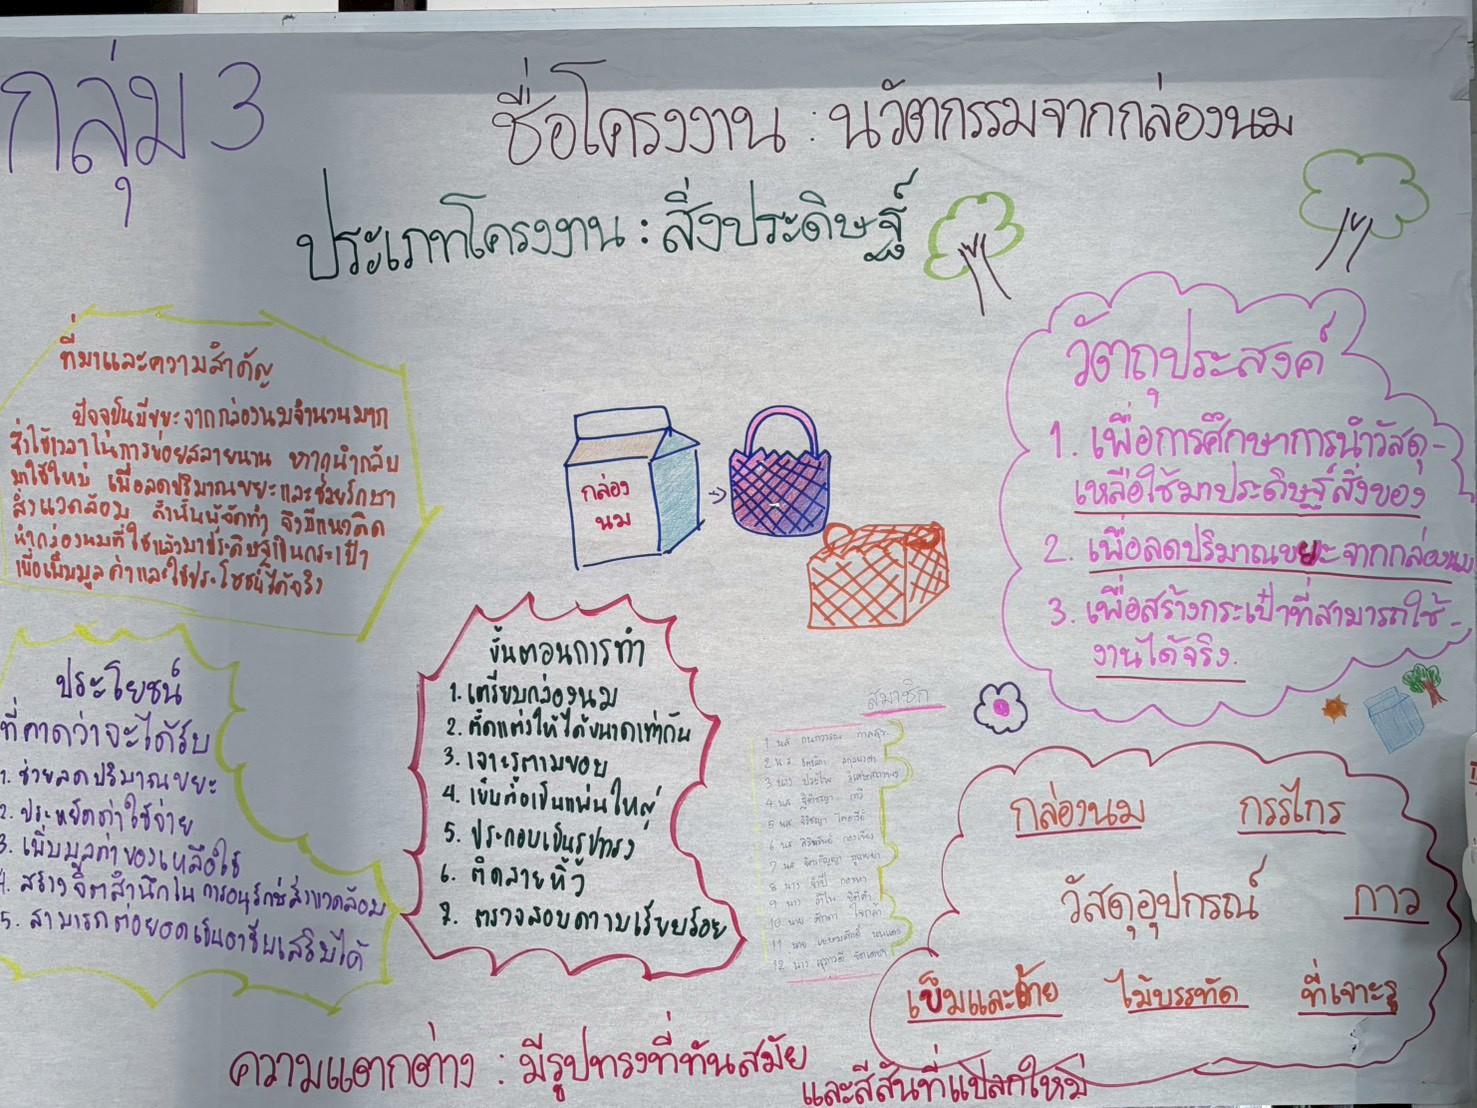 กลุ่ม 3
ชื่อโครงงาน : นวัตกรรมจากกล่องนม
ประเภทโครงงาน : สิ่งประดิษฐ์
ที่มาและความสำคัญ
ปัจจุบันมีขยะจากกล่องนมจำนวนมาก
ซึ่งใช้เวลาในการย่อยสลายนาน หากนำกลับ
มาใช้ใหม่ เพื่อลดปริมาณขยะและช่วยรักษา
สิ่งแวดล้อม ดังนั้นผู้จัดทำ จึงมีแนวคิด
นำกล่องนมที่ใช้แล้วมาประดิษฐ์เป็นกระเป๋า
เพื่อเพิ่มมูลค่าและใช้ประโยชน์ได้จริง
กล่อง
นม
วัตถุประสงค์
1. เพื่อการศึกษาการนำวัสดุ-
เหลือใช้มาประดิษฐ์สิ่งของ
2. เพื่อลดปริมาณขยะจากกล่องนม
3. เพื่อสร้างกระเป๋าที่สามารถใช้-
งานได้จริง.
ประโยชน์
ที่คาดว่าจะได้รับ
1. ช่วยลดปริมาณขยะ
2. ประหยัดค่าใช้จ่าย
3. เพิ่มมูลค่าของเหลือใช้
4. สร้างจิตสำนึกในการอนุรักษ์สิ่งแวดล้อม
5. สามารถต่อยอดเป็นอาชีพเสริมได้
ขั้นตอนการทำ
1. เตรียมกล่องนม
2. ตัดแต่งให้ได้ขนาดเท่ากัน
3. เจาะรูตามขอบ
4. เย็บต่อเป็นแผ่นใหญ่
5. ประกอบเป็นรูปทรง
6. ติดสายหิ้ว
7. ตรวจสอบความเรียบร้อย
สมาชิก
กล่องนม กรรไกร
วัสดุอุปกรณ์ กาว
เข็มและด้าย ไม้บรรทัด ที่เจาะรู
ความแตกต่าง : มีรูปทรงที่ทันสมัย
และสีสันที่แปลกใหม่